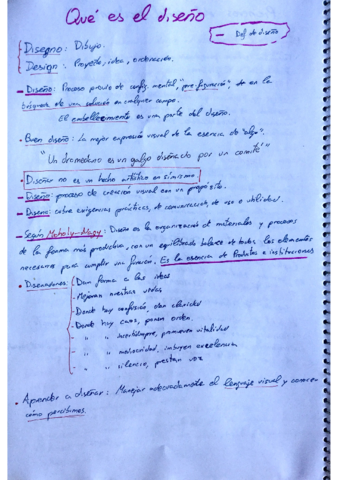 Qué es el diseño
- Def. de diseño
Disegno: Dibujo.
Design: Proyecto, idea, ordenación.
- Diseño: Proceso previo de config. mental, "prefiguración", de en la
búsqueda de una solución en cualquier campo.
El embellecimiento es una parte del diseño.
- Buen diseño: La mejor expresión visual de la esencia de "algo".
"Un dromedario es un galgo diseñado por un comité"
- Diseñar no es un hecho artístico en sí mismo
- Diseño: proceso de creación visual con un propósito.
- Diseño: cubre exigencias prácticas, de comunicación, de uso o utilidad.
- Según Moholy-Nagy: Diseño es la organización de materiales y procesos
de la forma más productiva, con un equilibrado balance de todos los elementos
necesarios para cumplir una función. Es la esencia de Productos e instituciones
- Diseñadores: - Dan forma a las ideas
- Mejoran nuestras vidas,
- Donde hay confusión, dan claridad
- Donde hay caos, ponen orden,
- " " incertidumbre, promueven vitalidad
- " " mediocridad, imbuyen excelencia
- " " silencio, prestan voz
- Aprender a diseñar: Manejar adecuadamente el lenguaje visual y conocer
cómo percibimos.